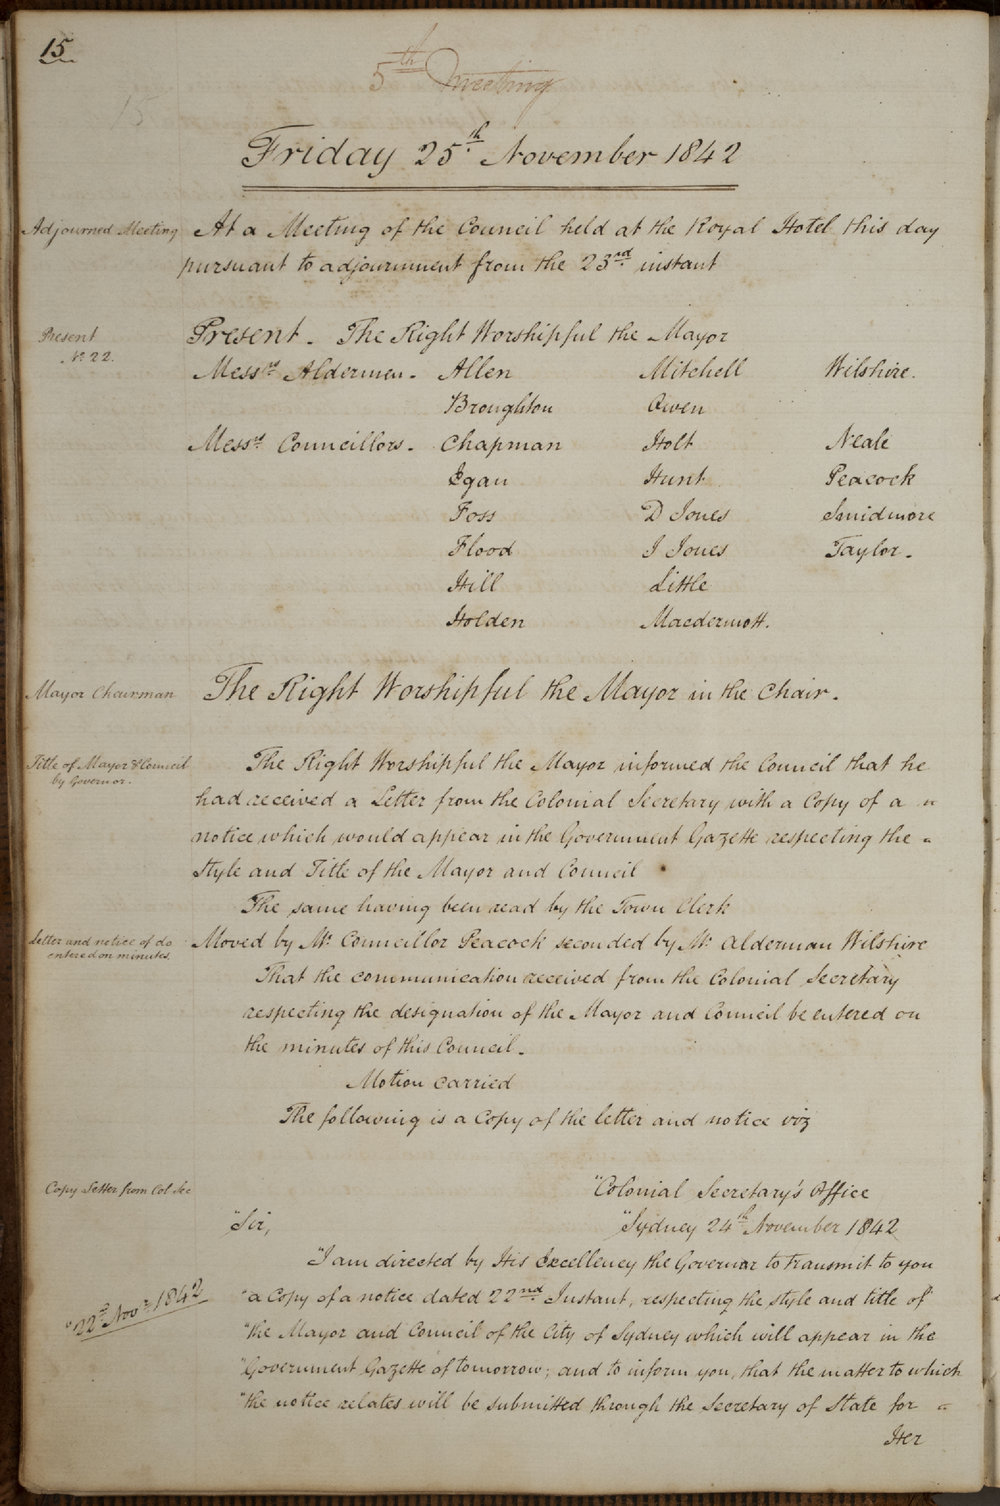 15
5th Meeting
15
Friday 25th November 1842
Adjourned Meeting At a Meeting of the Council held at the Royal Hotel this day
pursuant to adjournment from the 23rd instant
Present Present. The Right Worshipful the Mayor
No 22.
Messrs Aldermen. Allen Mitchell Wilshire.
Broughton Owen
Messrs Councillors. Chapman Holt Neale
Egan Hunt Peacock
Foss D Jones Smidmore
Flood I Jones Taylor.
Hill Little
Holden Macdermott.
Mayor Chairman The Right Worshipful the Mayor in the Chair.
Title of Mayor & Council The Right Worshipful the Mayor informed the Council that he
by Governor.
had received a Letter from the Colonial Secretary with a Copy of a "
notice which would appear in the Government Gazette respecting the "
Style and Title of the Mayor and Council
The same having been read by the Town Clerk
Letter and notice of do Moved by Mr Councillor Peacock seconded by Mr Alderman Wilshire
entered on minutes.
That the communication received from the Colonial Secretary
respecting the designation of the Mayor and Council be entered on
the minutes of this Council.
Motion carried
The following is a Copy of the letter and notice viz
Copy Letter from Col Sec "Colonial Secretary's Office
"Sir, "Sydney 24th November 1842
"I am directed by His Excellency the Governor to transmit to you
"22nd Novr 1842 "a Copy of a notice dated 22nd Instant, respecting the style and title of
"the Mayor and Council of the City of Sydney which will appear in the
"Government Gazette of tomorrow; and to inform you, that the matter to which
"the notice relates will be submitted through the Secretary of State for "
Her